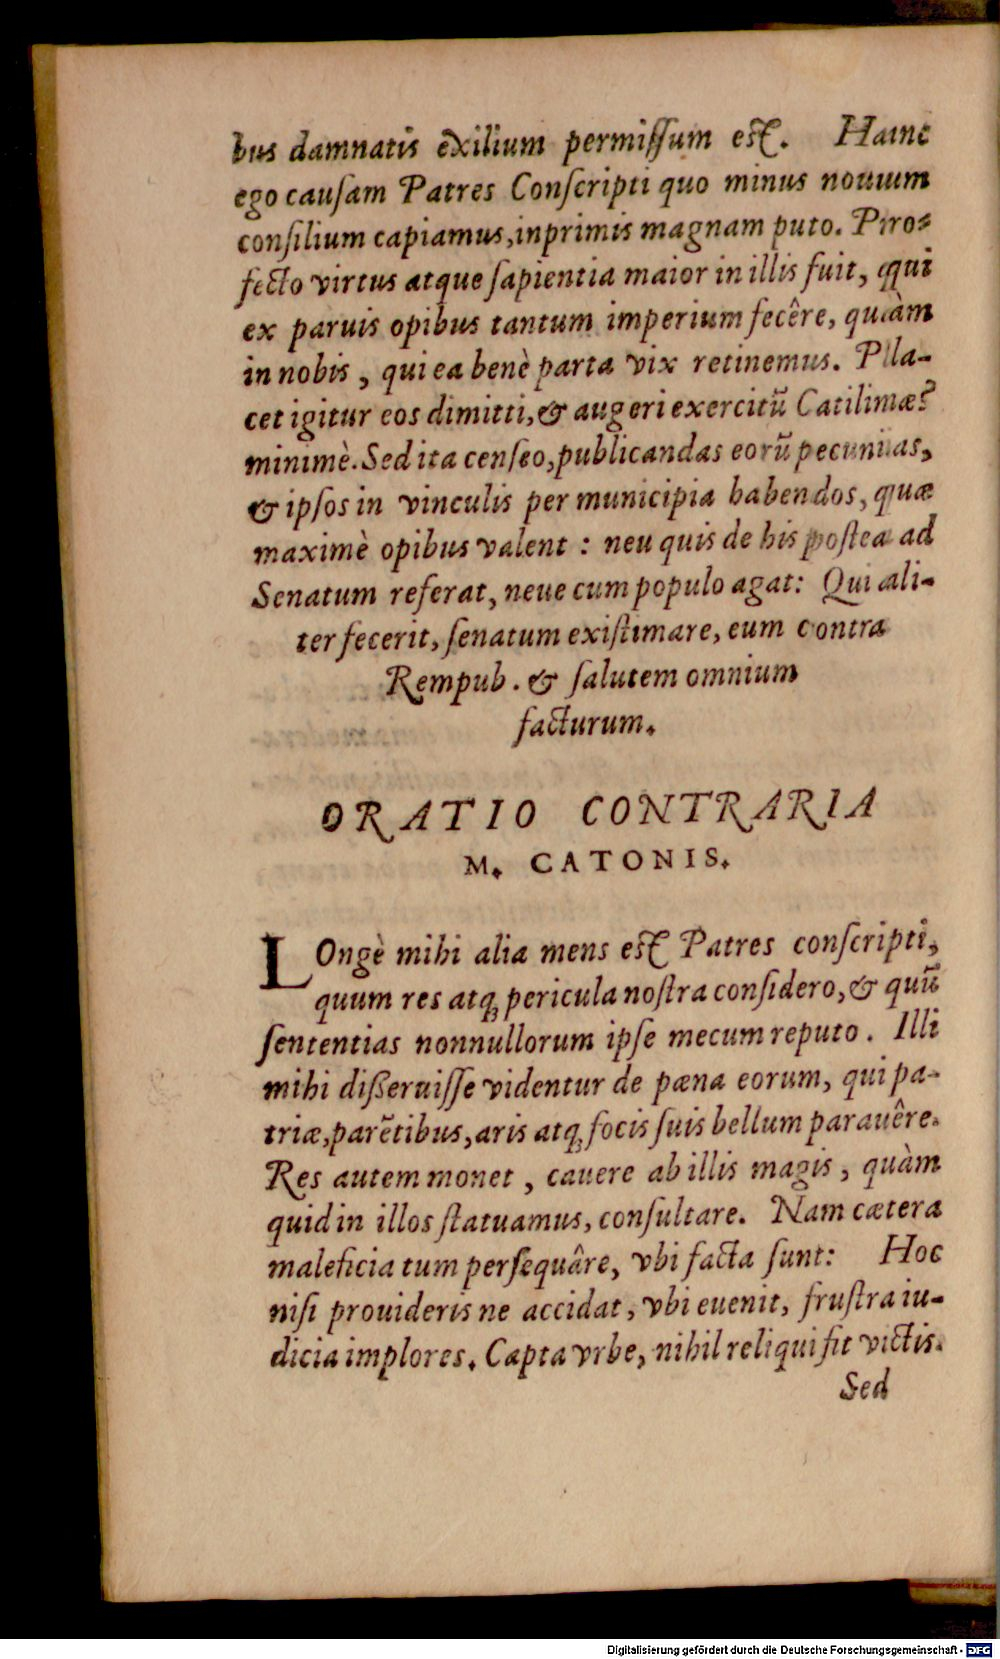 bus damnatis exilium permiſſum eſt. Hanc
ego cauſam Patres Conſcripti quo minus nouum
conſilium capiamus, inprimis magnam puto. Pro-
fecto virtus atque ſapientia maior in illis fuit, qui
ex paruis opibus tantum imperium fecêre, quàm
in nobis, qui ea benè parta vix retinemus. Pla-
cet igitur eos dimitti, & augeri exercitũ Catilinæ?
minimè. Sed ita cenſeo, publicandas eorũ pecunias,
& ipſos in vinculis per municipia habendos, quæ
maximè opibus valent : neu quis de his poſtea ad
Senatum referat, neue cum populo agat: Qui ali-
ter fecerit, ſenatum exiſtimare, eum contra
Rempub. & ſalutem omnium
facturum.
ORATIO CONTRARIA
M. CATONIS.
LOngè mihi alia mens eſt Patres conſcripti,
quum res atq; pericula noſtra conſidero, & quũ
ſententias nonnullorum ipſe mecum reputo. Illi
mihi dißeruiſſe videntur de pæna eorum, qui pa-
triæ, parẽtibus, aris atq; focis ſuis bellum parauêre.
Res autem monet, cauere ab illis magis, quàm
quid in illos ſtatuamus, conſultare. Nam cætera
maleficia tum perſequâre, vbi facta ſunt: Hoc
niſi prouideris ne accidat, vbi euenit, fruſtra iu-
dicia implores. Capta vrbe, nihil reliqui fit victis.
Sed
Digitalisierung gefördert durch die Deutsche Forschungsgemeinschaft - DFG